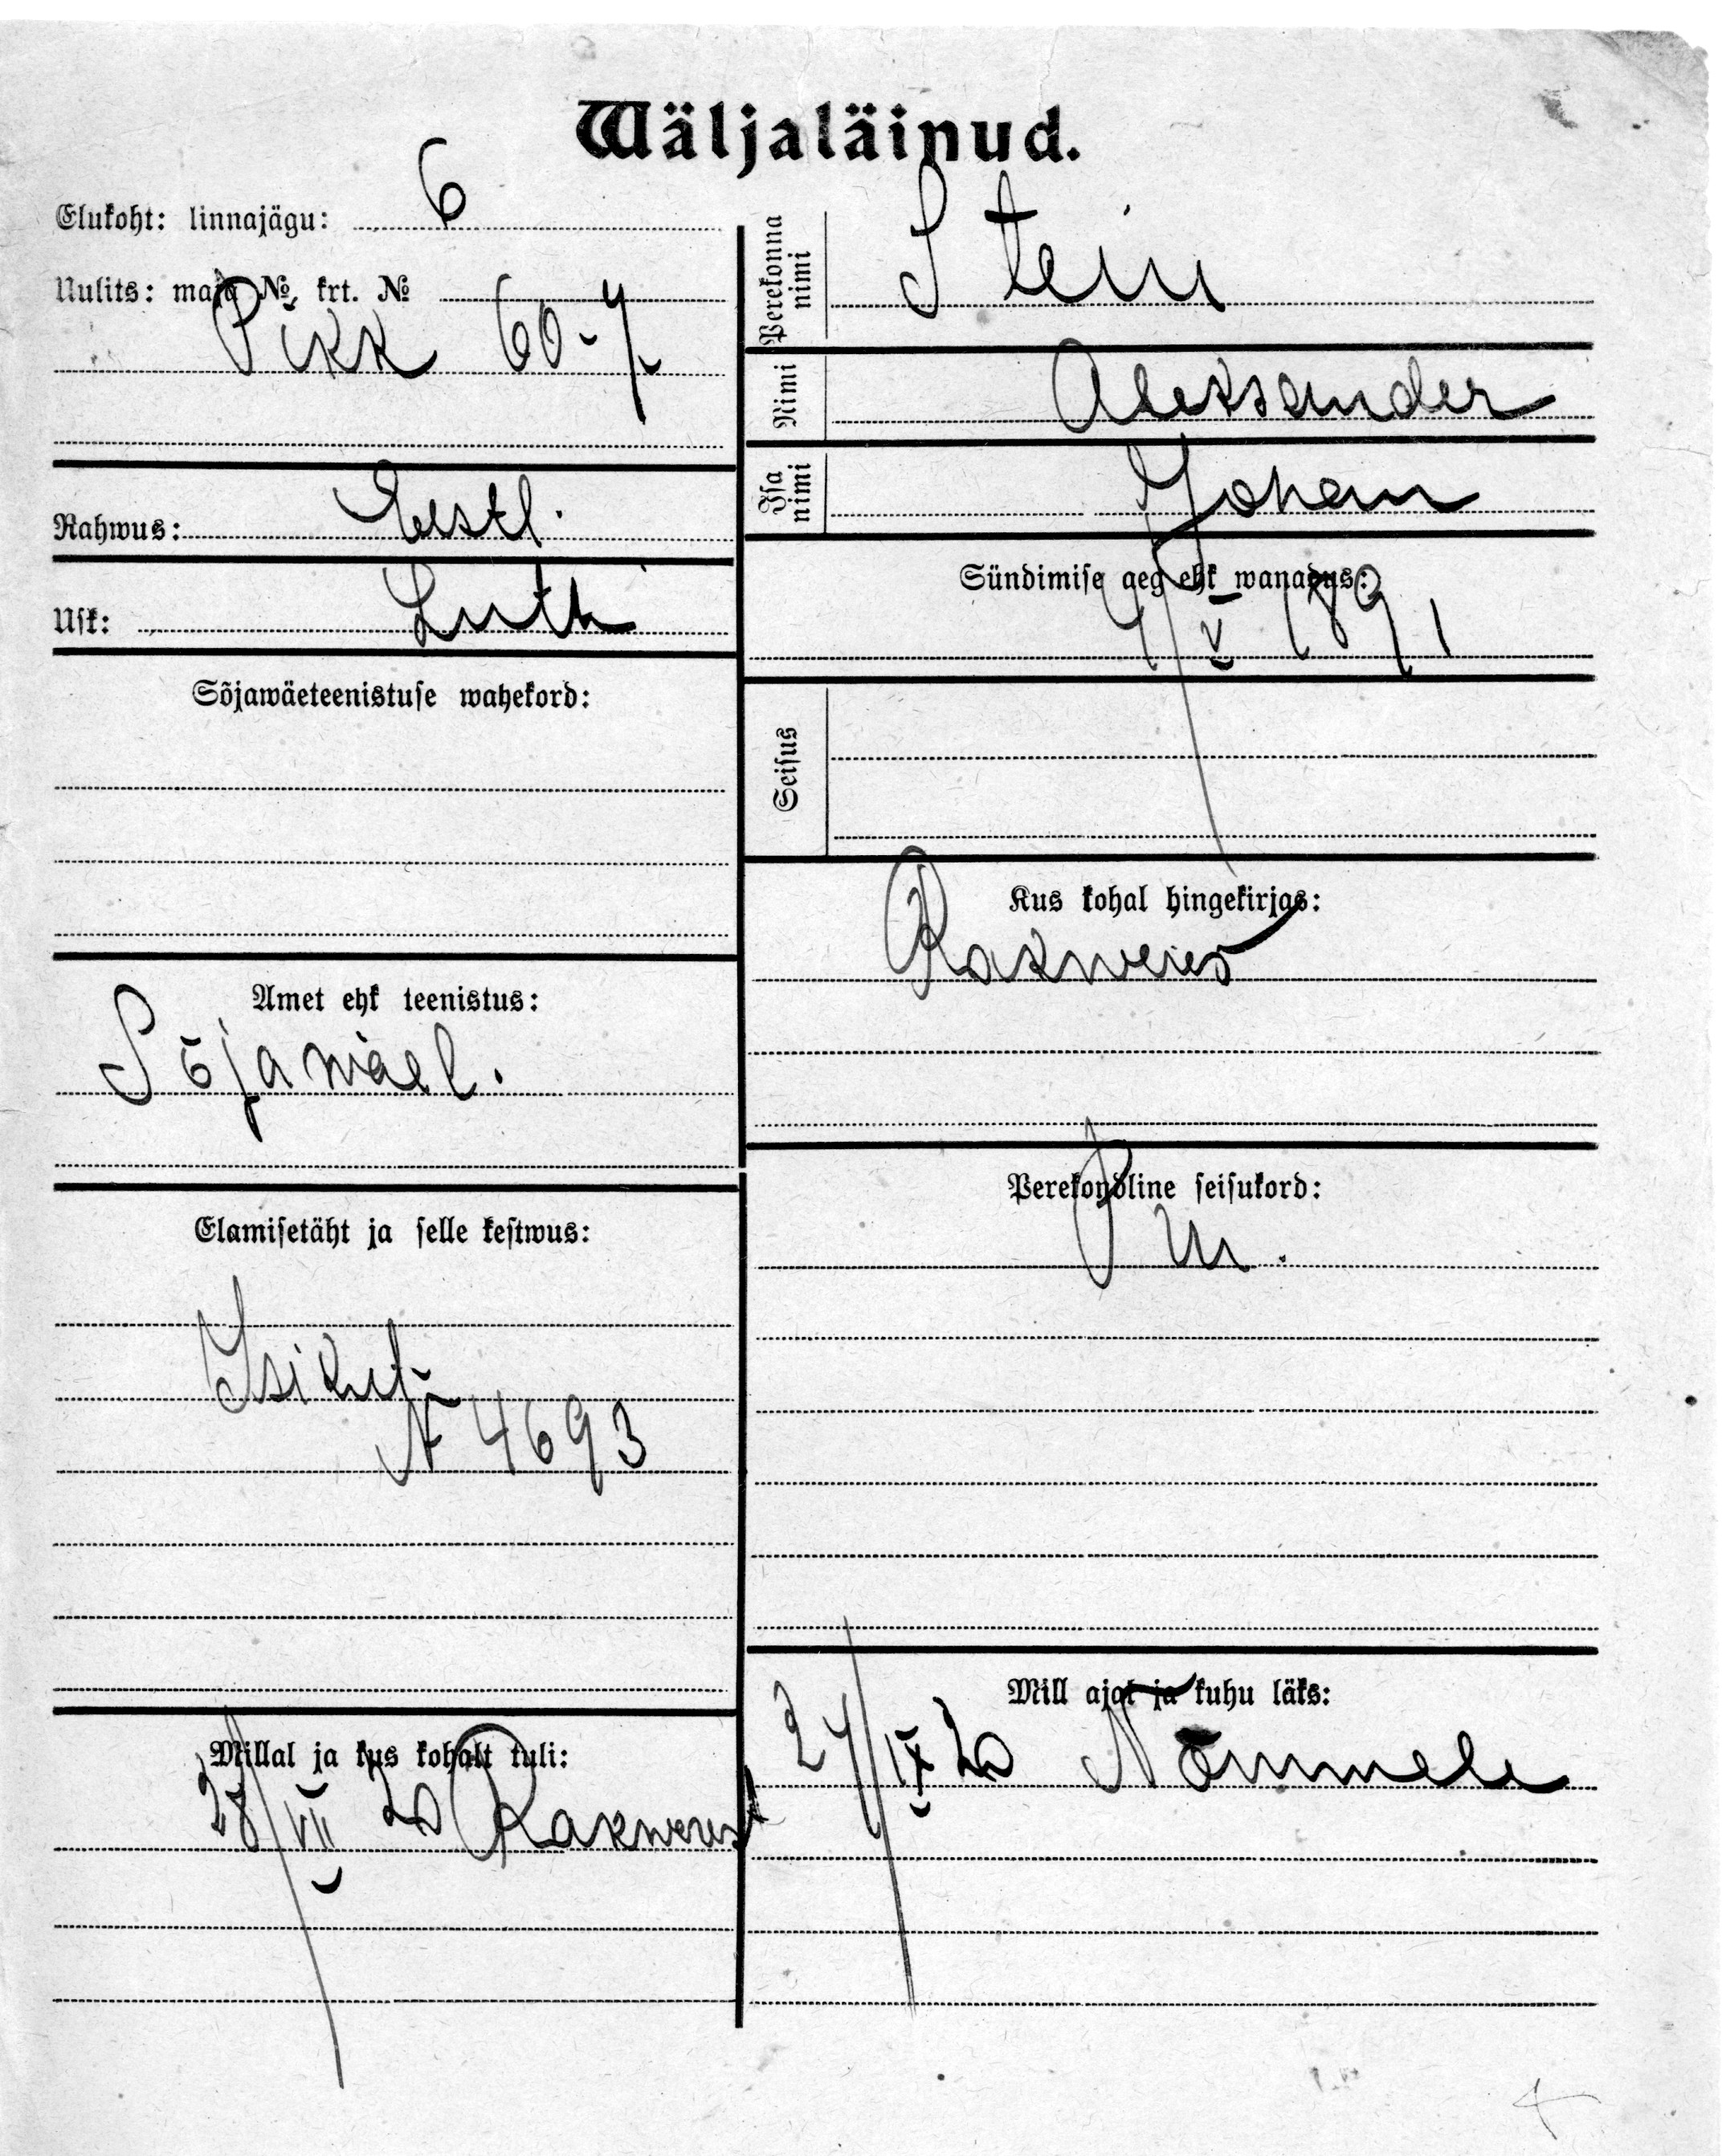 Wäljaläinud.
Elukoht: linnajägu: 6
Uulits: maja № krt. №
Pikk 60-7
Rahwus: Eestl.
Usk: Luth
Sõjawäeteenistuse wahekord:
Amet ehk teenistus:
Sõjawäel.
Elamisetäht ja selle kestwus:
Isikut.
N 4693
Millal ja kus kohalt tuli:
28/VII 20 Rakwerest
Perekonna nimi
Stein
Nimi
Aleksander
Isa nimi
Johan
Sündimise aeg ehk wanadus:
4/V 1891
Seisus
Kus kohal hingekirjas:
Rakweres
Perekondline seisukord:
Mill ajal ja kuhu läks:
24/IX 20 Nõmmele